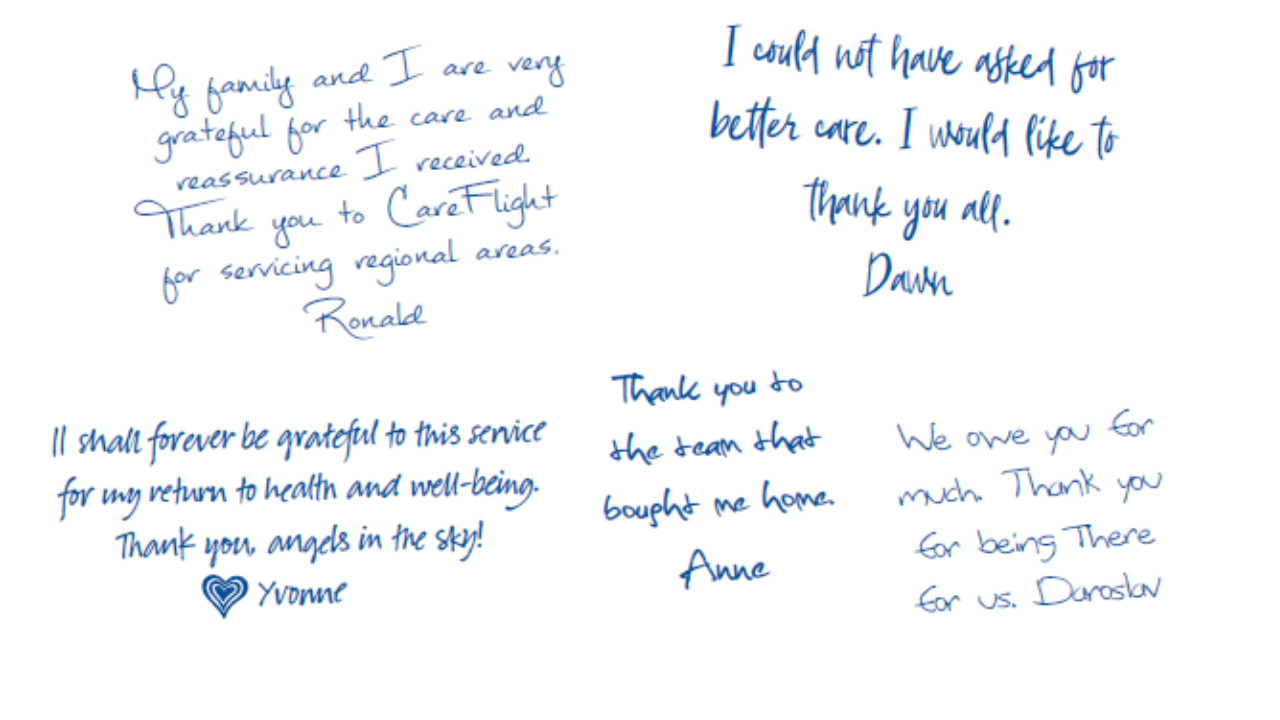 My family and I are very
grateful for the care and
reassurance I received.
Thank you to CareFlight
for servicing regional areas.
Ronald
I could not have asked for
better care. I would like to
thank you all.
Dawn
II shall forever be grateful to this service
for my return to health and well-being.
Thank you, angels in the sky!
Yvonne
Thank you to
the team that
bought me home.
Anne
We owe you for
much. Thank you
for being There
for us. Daroslav